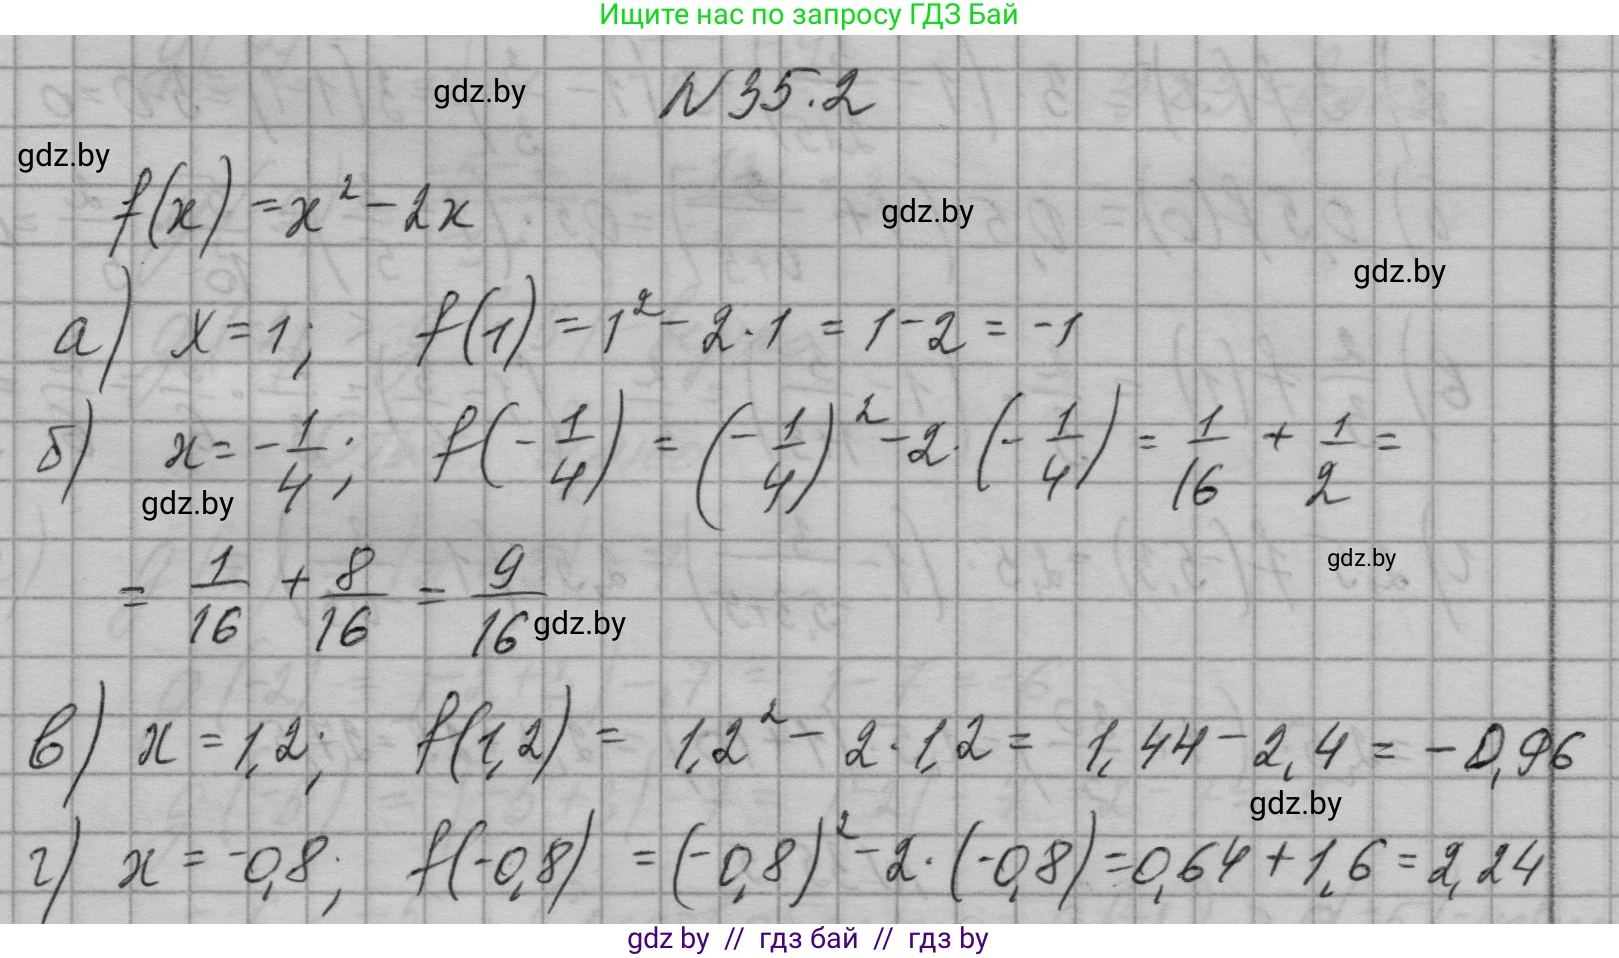 Ищите нас по запросу ГДЗ Бай
N 35.2
gdz.by
gdz.by
f(x) = x² - 2x
gdz.by
gdz.by
а) x = 1; f(1) = 1² - 2·1 = 1 - 2 = -1
б) x = -1/4; f(-1/4) = (-1/4)² - 2·(-1/4) = 1/16 + 1/2 =
gdz.by
= 1/16 + 8/16 = 9/16
gdz.by
gdz.by
в) x = 1,2; f(1,2) = 1,2² - 2·1,2 = 1,44 - 2,4 = -0,96
gdz.by
г) x = -0,8; f(-0,8) = (-0,8)² - 2·(-0,8) = 0,64 + 1,6 = 2,24
gdz by // гдз бай // гдз by